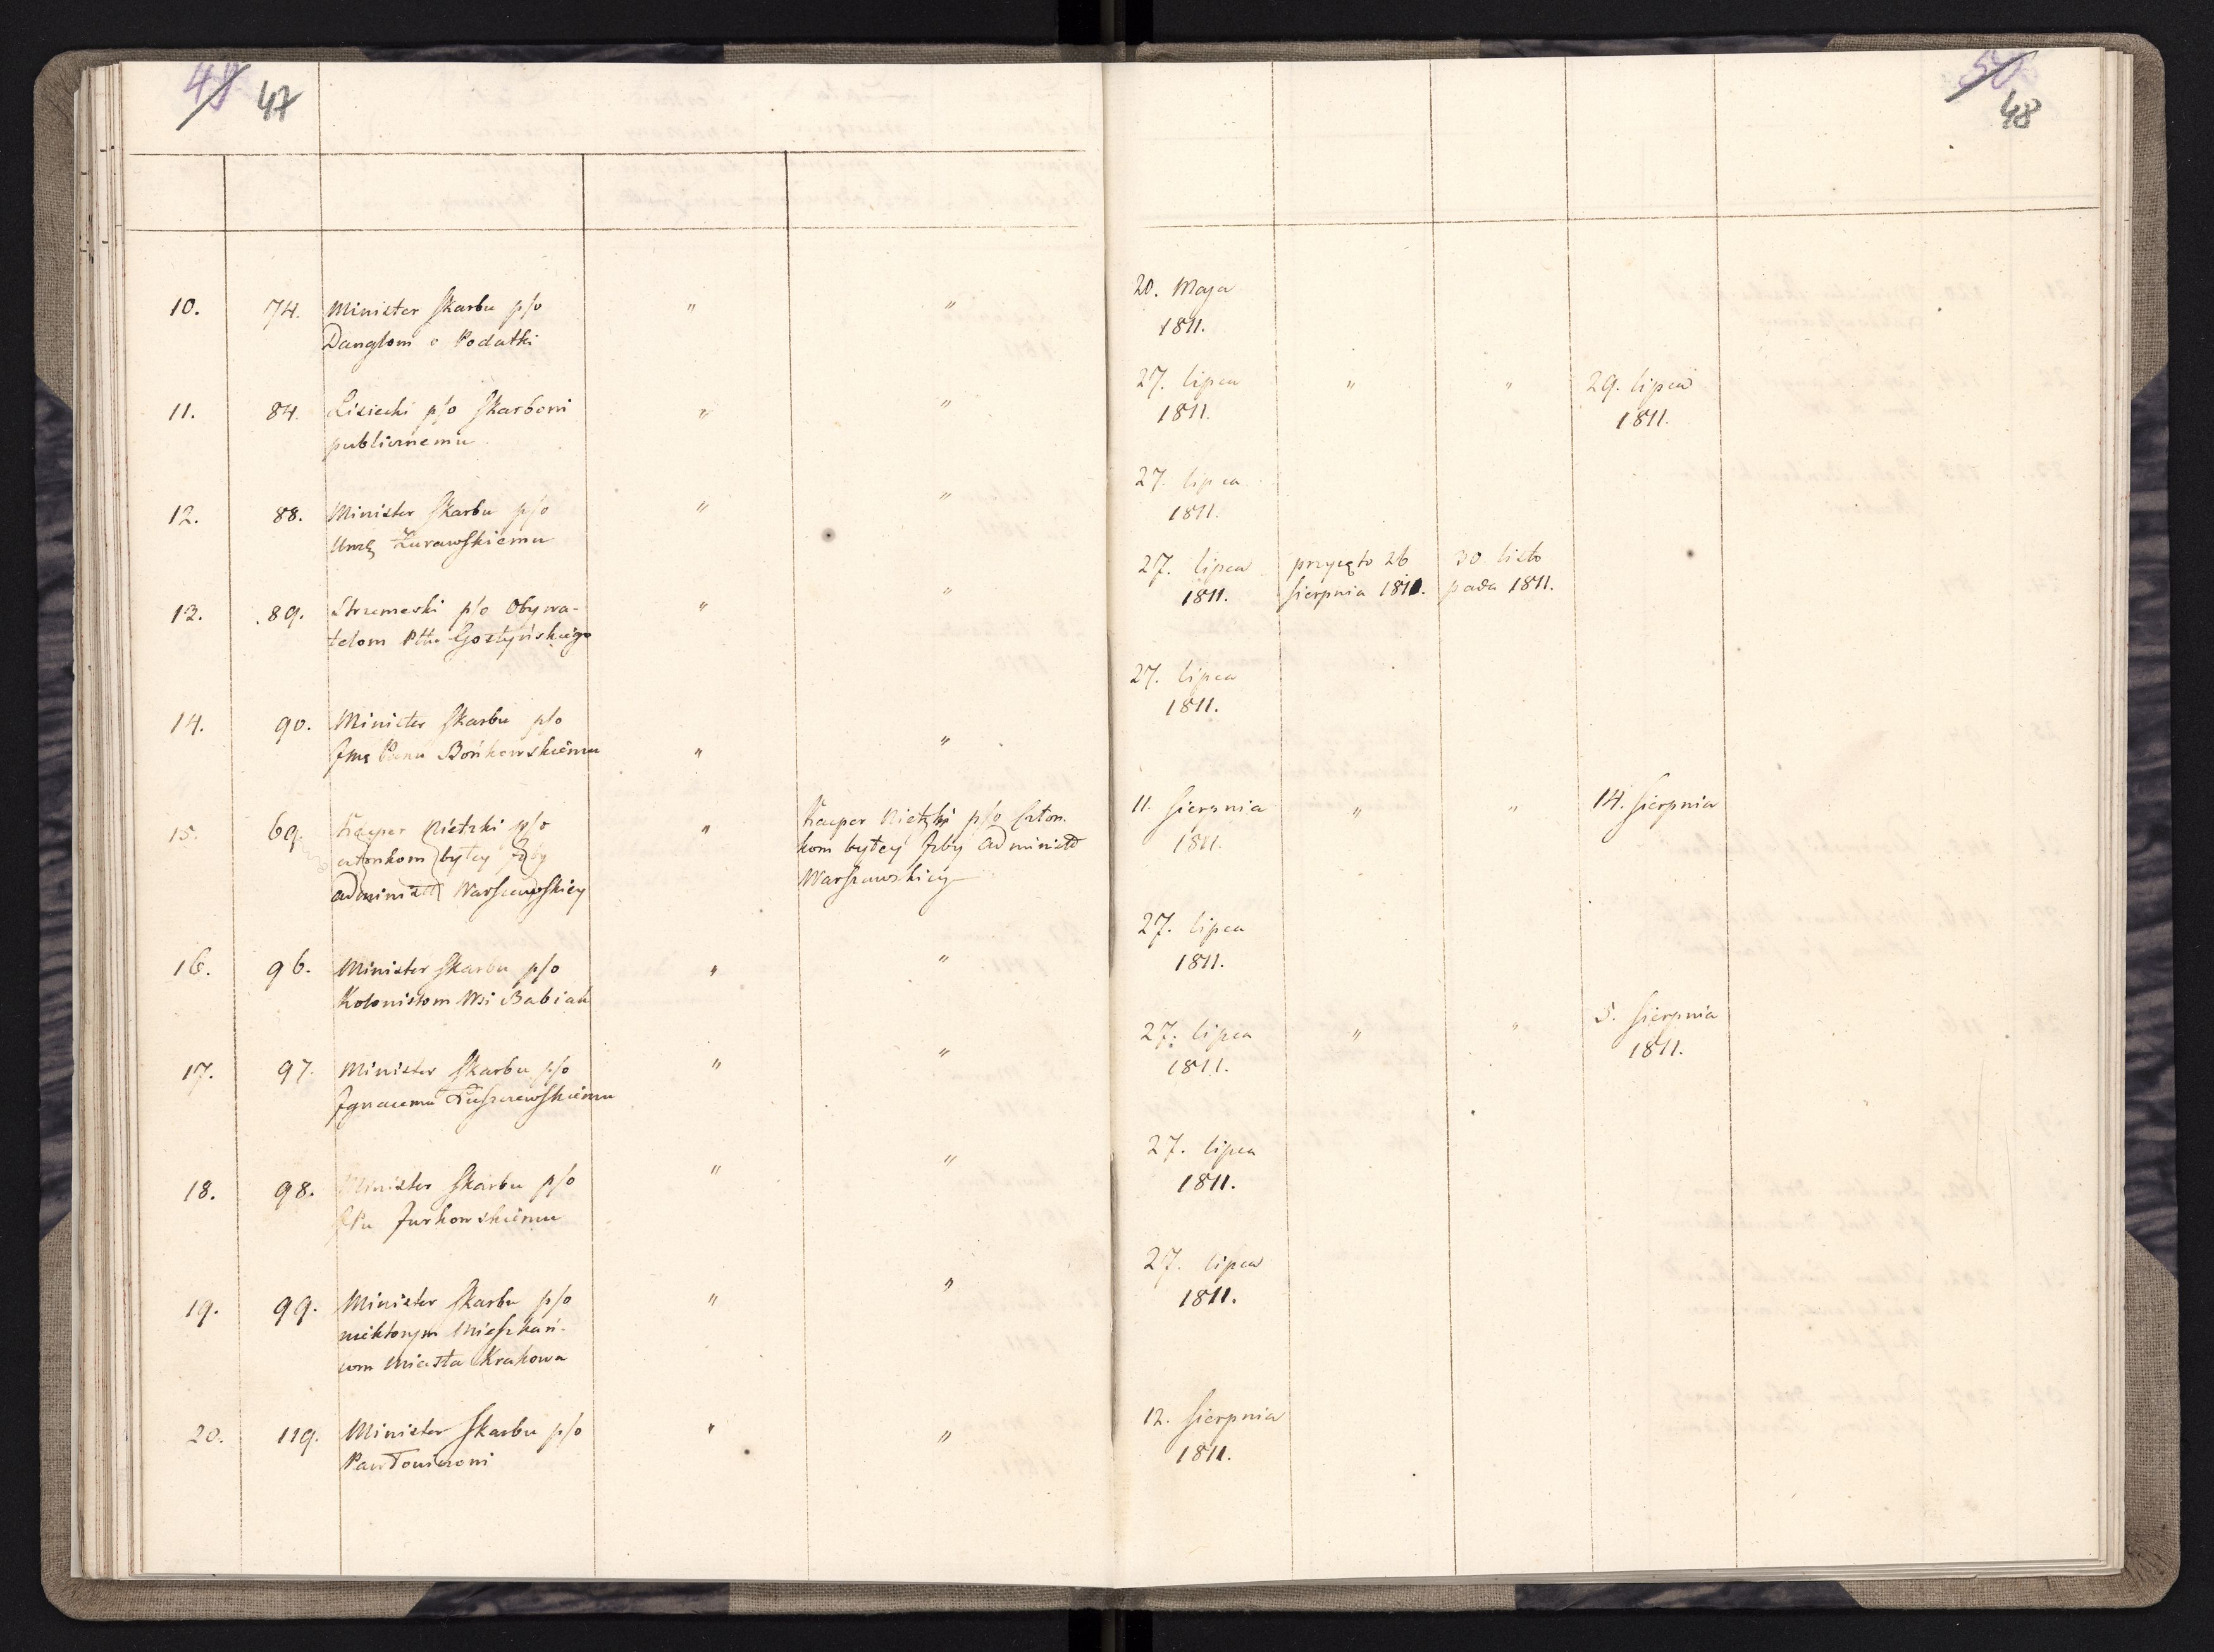 49 47
50 48
10. 74. Minister Skarbu p/o " " 20. Maja
Danglom o Podatki 1811.
11. 84. Lisiecki p/o Skarbowi " " 27. lipca " " 29. lipca
publicznemu 1811. 1811.
12. 88. Minister Skarbu p/o " " 27. lipca
Żurawskiemu 1811.
13. 89. Strzemeski p/o Obywa- " " 27. lipca przyięto 26 30 listo
telom Pttu Gostyńskiego 1811. Sierpnia 1811. pada 1811.
14. 90. Minister Skarbu p/o 27. lipca
Jmć Panu Bońkowskiemu " " 1811.
15. 69. Kacper Nietzki p/o " Kacper Nietzki p/o Człon- 11. Sierpnia " " 14. Sierpnia
członkom byłey Izby kom byłey Izby Administ 1811.
administ Warszawskiey Warszawskiey
16. 96. Minister Skarbu p/o " " 27. lipca
Kolonistom Wsi Babiak 1811.
17. 97. Minister Skarbu p/o " " 27. lipca " " 5. Sierpnia
Ignacemu 1811. 1811.
18. 98. Minister Skarbu p/o " " 27. lipca
JPu Jurkowskiemu 1811.
19. 99. Minister Skarbu p/o " " 27. lipca
niektorym Mieszkań- 1811.
com Miasta Krakowa
20. 119. Minister Skarbu p/o " " 12. Sierpnia
Pawłowiczowi 1811.